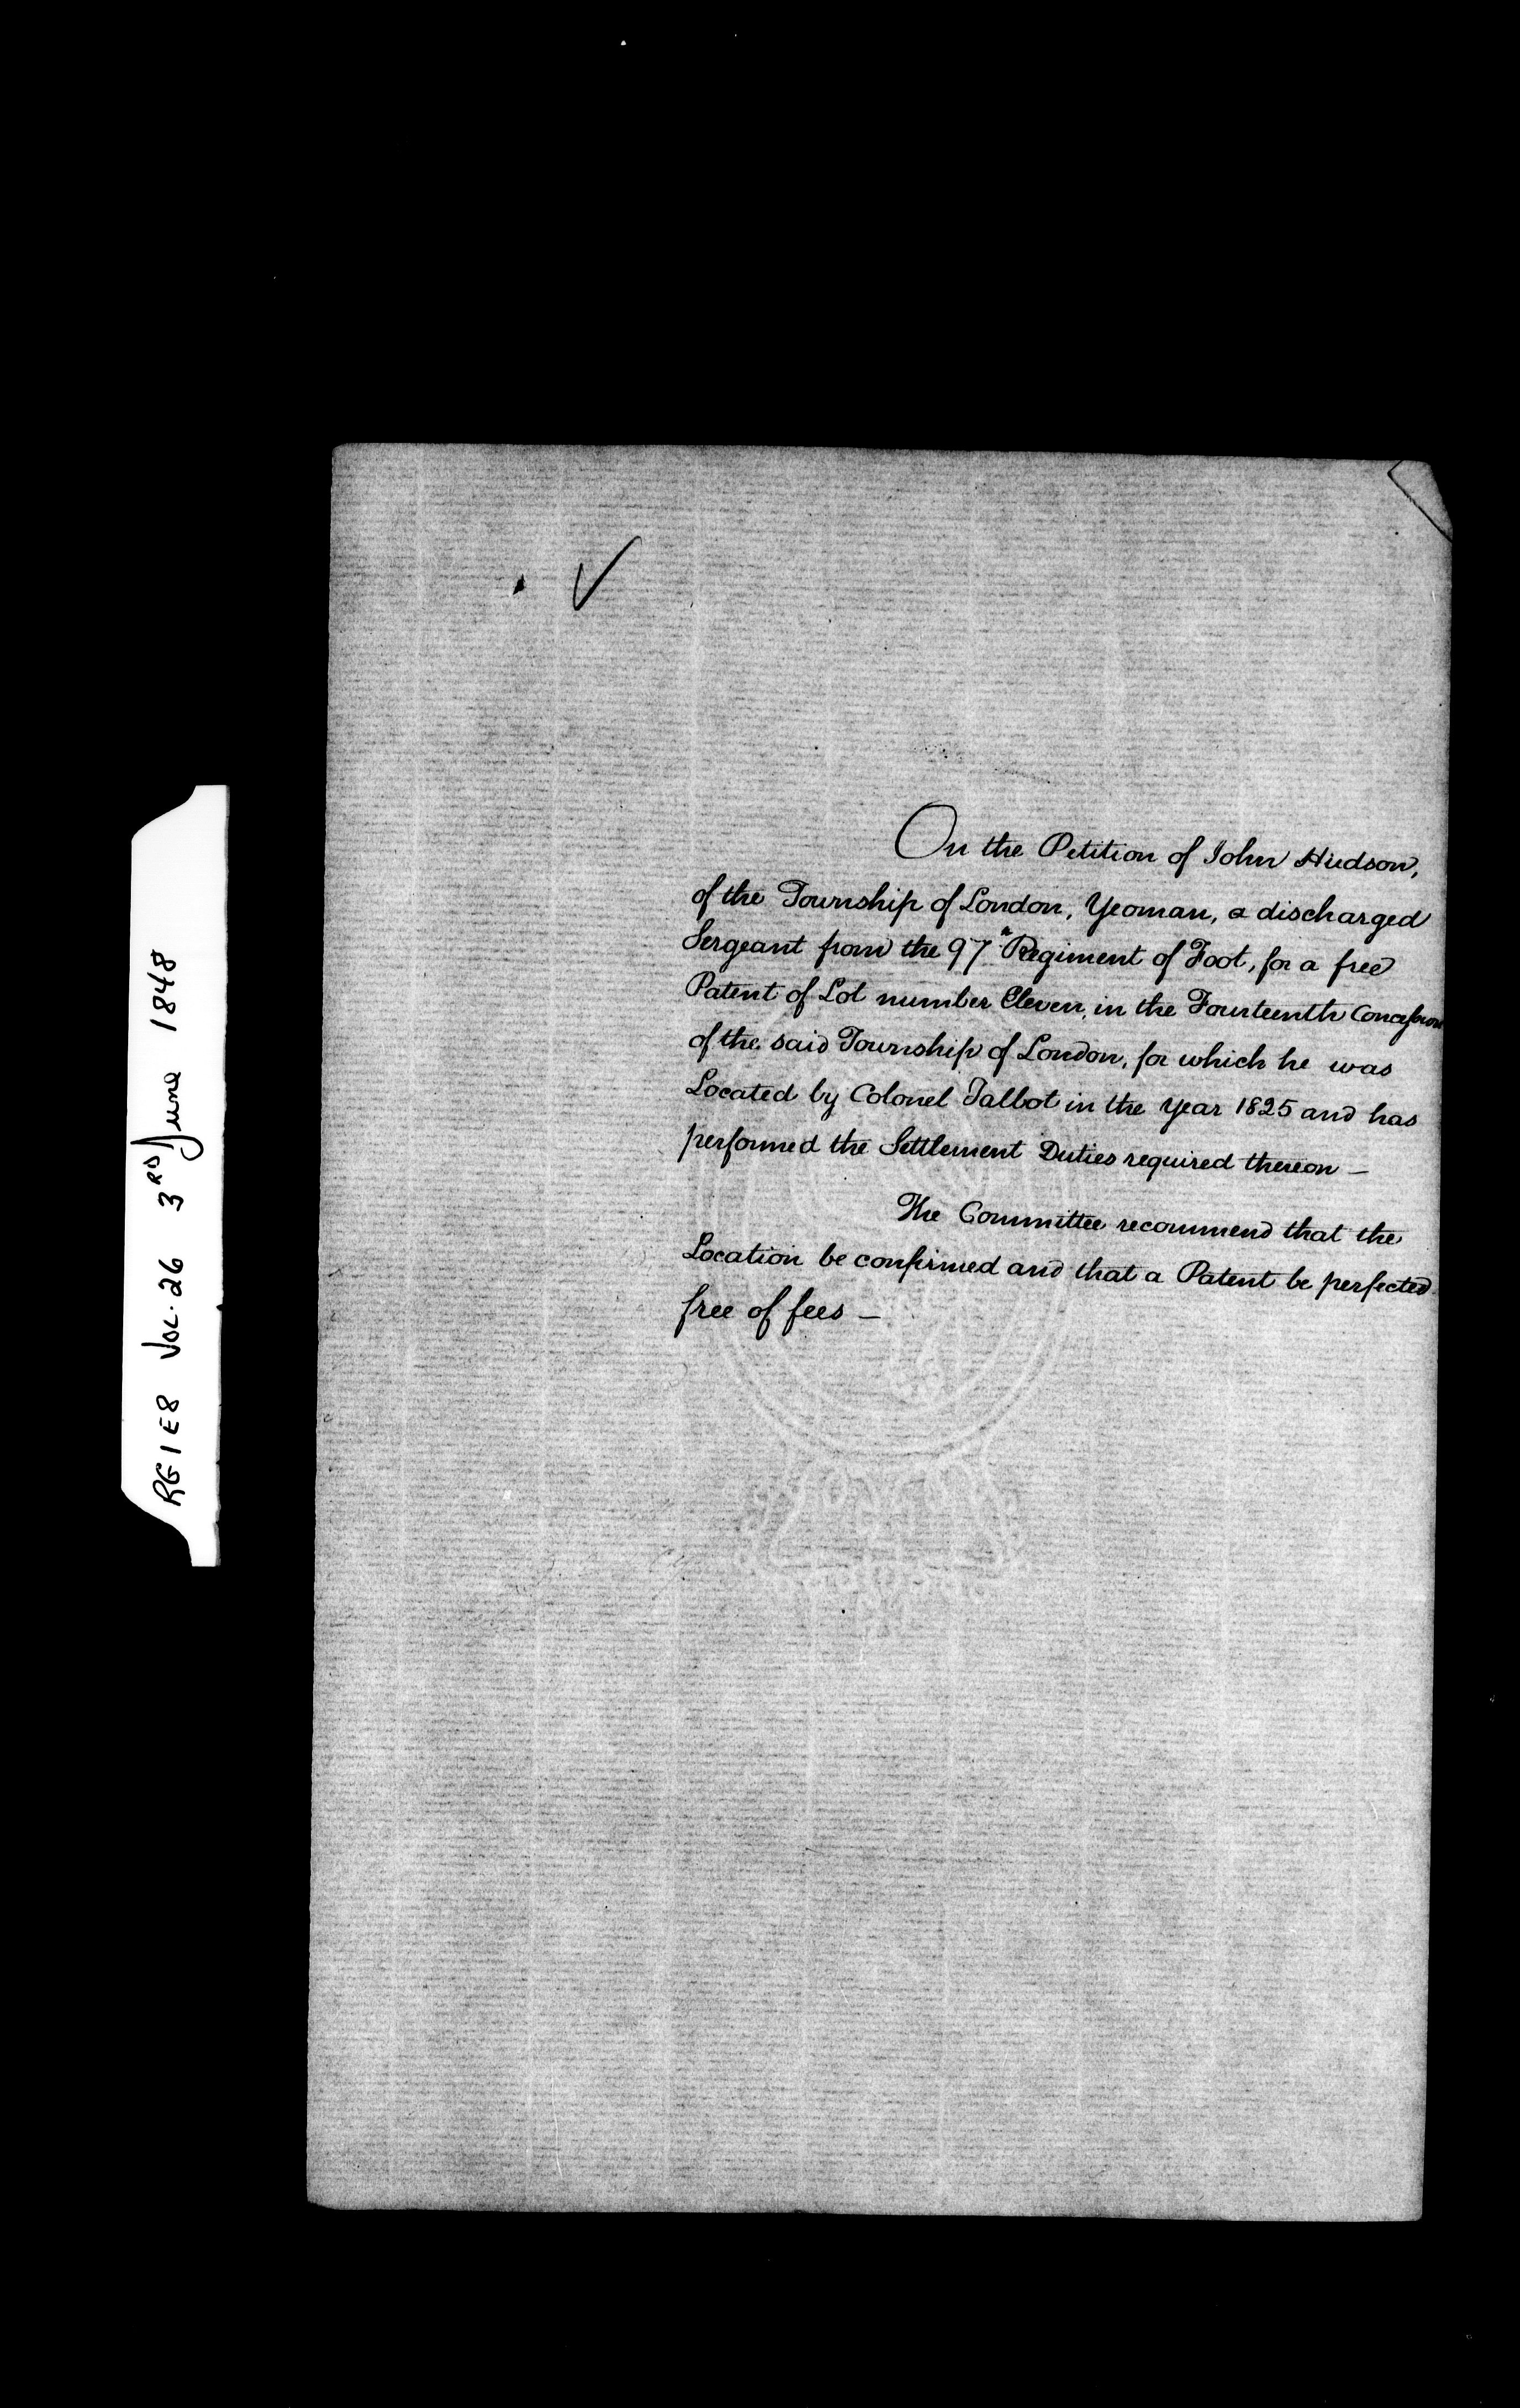 RG 1 E8 VOL. 26 3RD June 1848
On the Petition of John Hudson,
of the Township of London, Yeoman, a discharged
Sergeant from the 97th Regiment of Foot, for a free
Patent of Lot number Eleven, in the Fourteenth Concession
of the said Township of London, for which he was
Located by Colonel Talbot in the Year 1825 and has
performed the Settlement Duties required thereon —
The Committee recommend that the
Location be confirmed and that a Patent be perfected
free of fees —